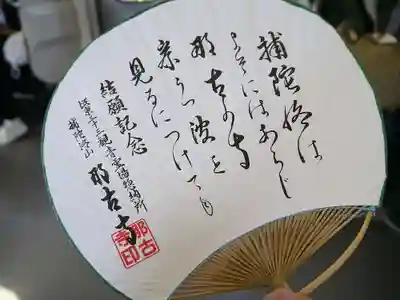 補陀洛は
よそにはあらじ
那古の寺
岸うつ波を
見るにつけても
結願記念
坂東三十三観音霊場結願所
補陀洛山
那古寺
那古寺印